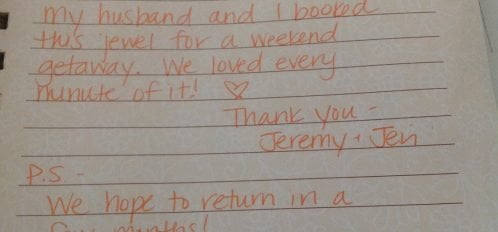 my husband and I booked
this jewel for a weekend
getaway. We loved every
minute of it! ♡
Thank you -
Jeremy + Jen
P.S. -
We hope to return in a
few months!